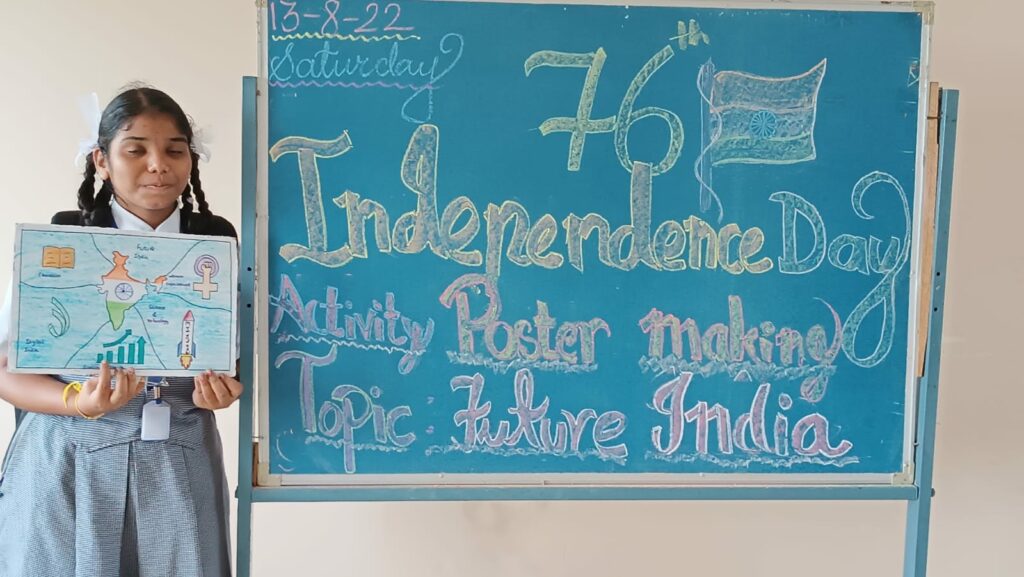 13-8-22
Saturday
76th
Independence Day
Activity Poster making
Topic: Future India
Future
India
Education
Science
&
technology
Digital
India